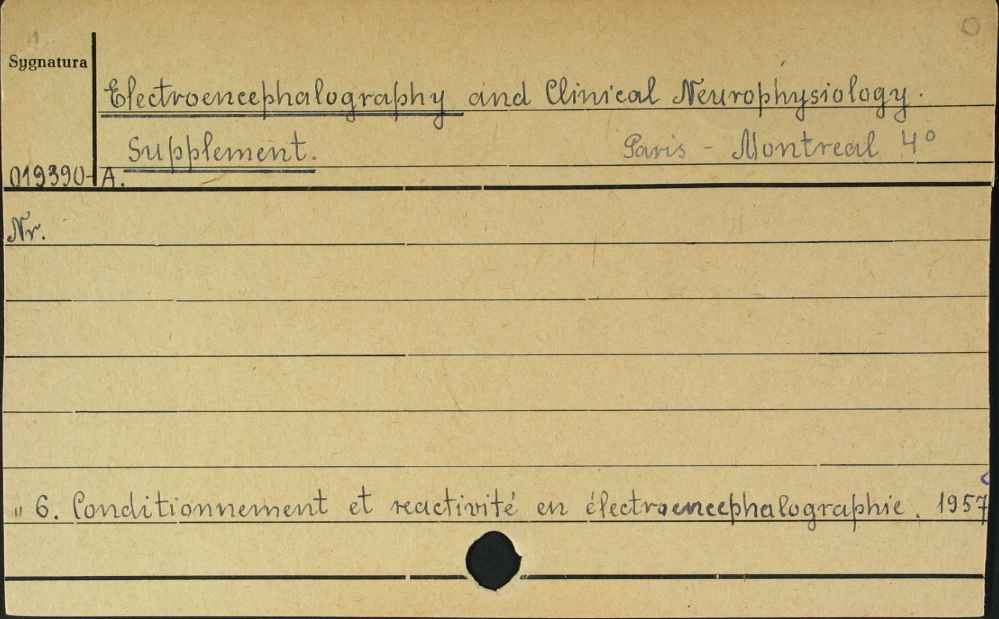 Sygnatura
Electroencephalography and Clinical Neurophysiology.
Supplement. Paris - Montreal 4°
019390-A.
Nr.
" 6. Conditionnement et reactivité en électroencephalographie. 1957